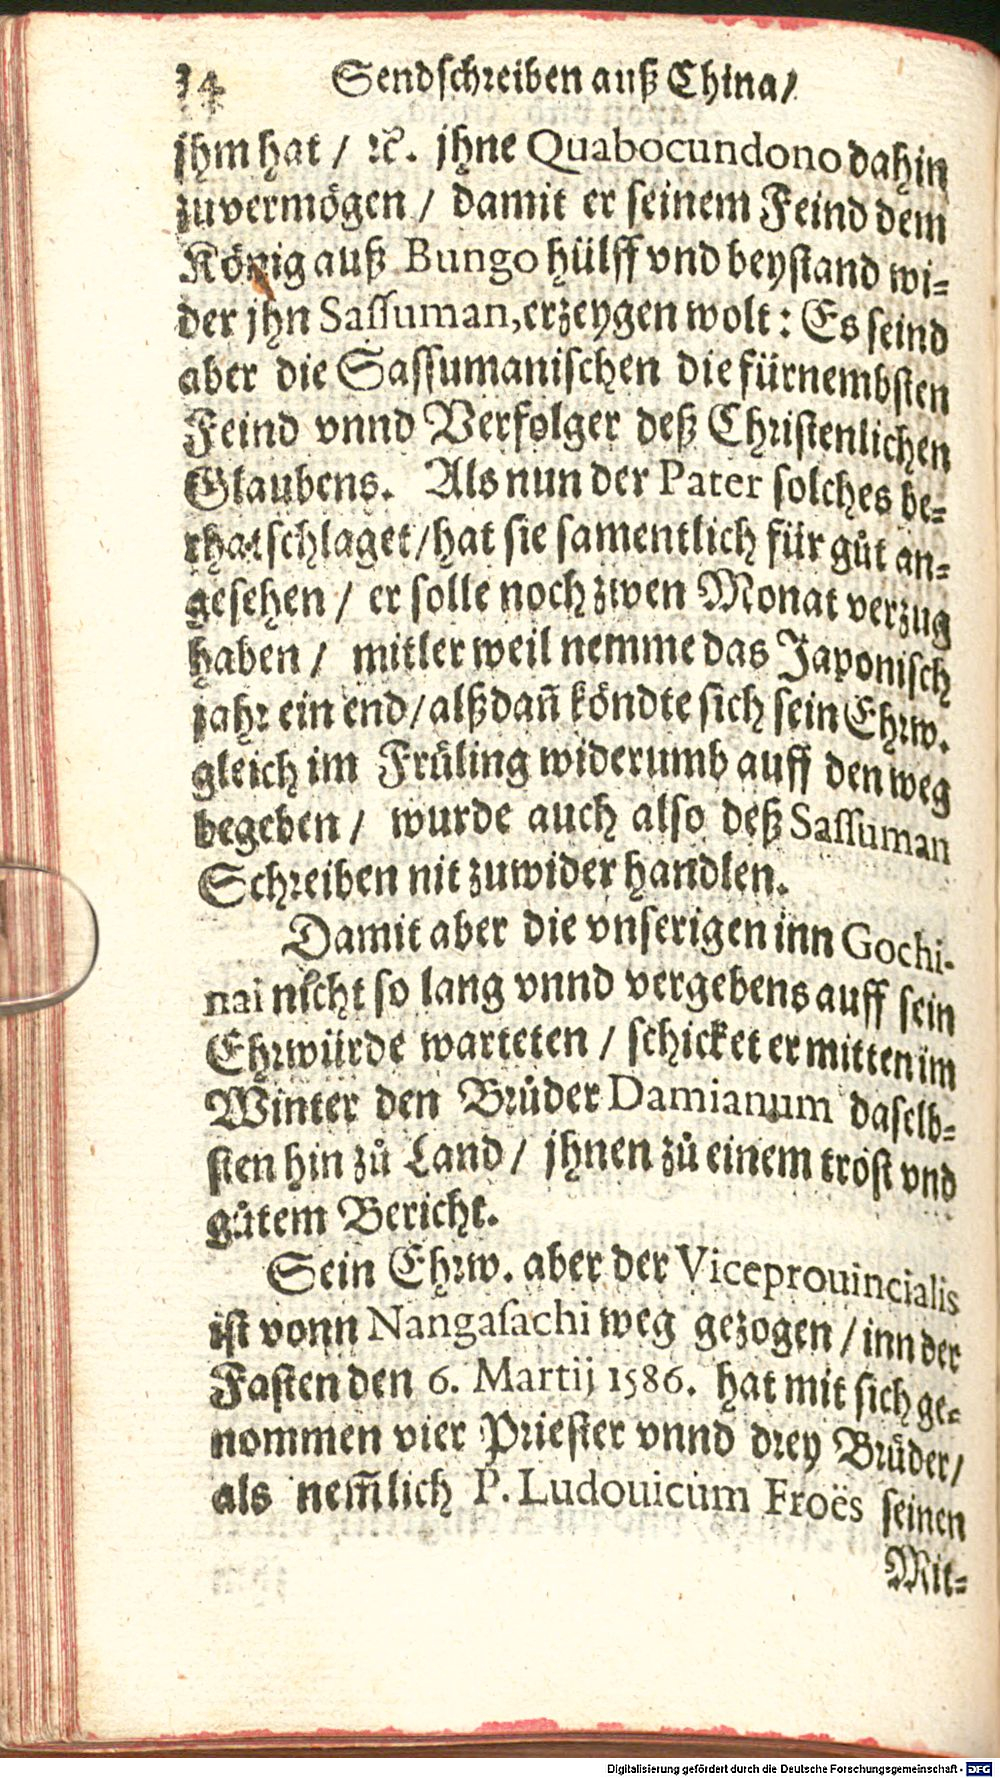 34 Sendschreiben auß China/
jhm hat / ꝛc. jhne Quabocundono dahin
zuvermögen / damit er seinem Feind dem
König auß Bungo hülff vnd beystand wi-
der jhn Sassuman, erzeygen wolt: Es seind
aber die Sassumanischen die fürnembsten
Feind vnnd Verfolger deß Christenlichen
Glaubens. Als nun der Pater solches be-
rhatschlaget/hat sie samentlich für gůt an-
gesehen / er solle noch zwen Monat verzug
haben / mitler weil nemme das Japonisch
jahr ein end/alßdañ köndte sich sein Ehrw.
gleich im Früling widerumb auff den weg
begeben / wurde auch also deß Sassuman
Schreiben nit zuwider handlen.
Damit aber die vnserigen inn Gochi-
nai nicht so lang vnnd vergebens auff sein
Ehrwürde warteten / schicket er mitten im
Winter den Brůder Damianum daselb-
sten hin zů Land / jhnen zů einem trost vnd
gůtem Bericht.
Sein Ehrw. aber der Viceprouincialis
ist vonn Nangasachi weg gezogen / inn der
Fasten den 6. Martij 1586. hat mit sich ge-
nommen vier Priester vnnd drey Brüder/
als nem̃lich P. Ludouicum Froës seinen
Mit-
Digitalisierung gefördert durch die Deutsche Forschungsgemeinschaft - DFG